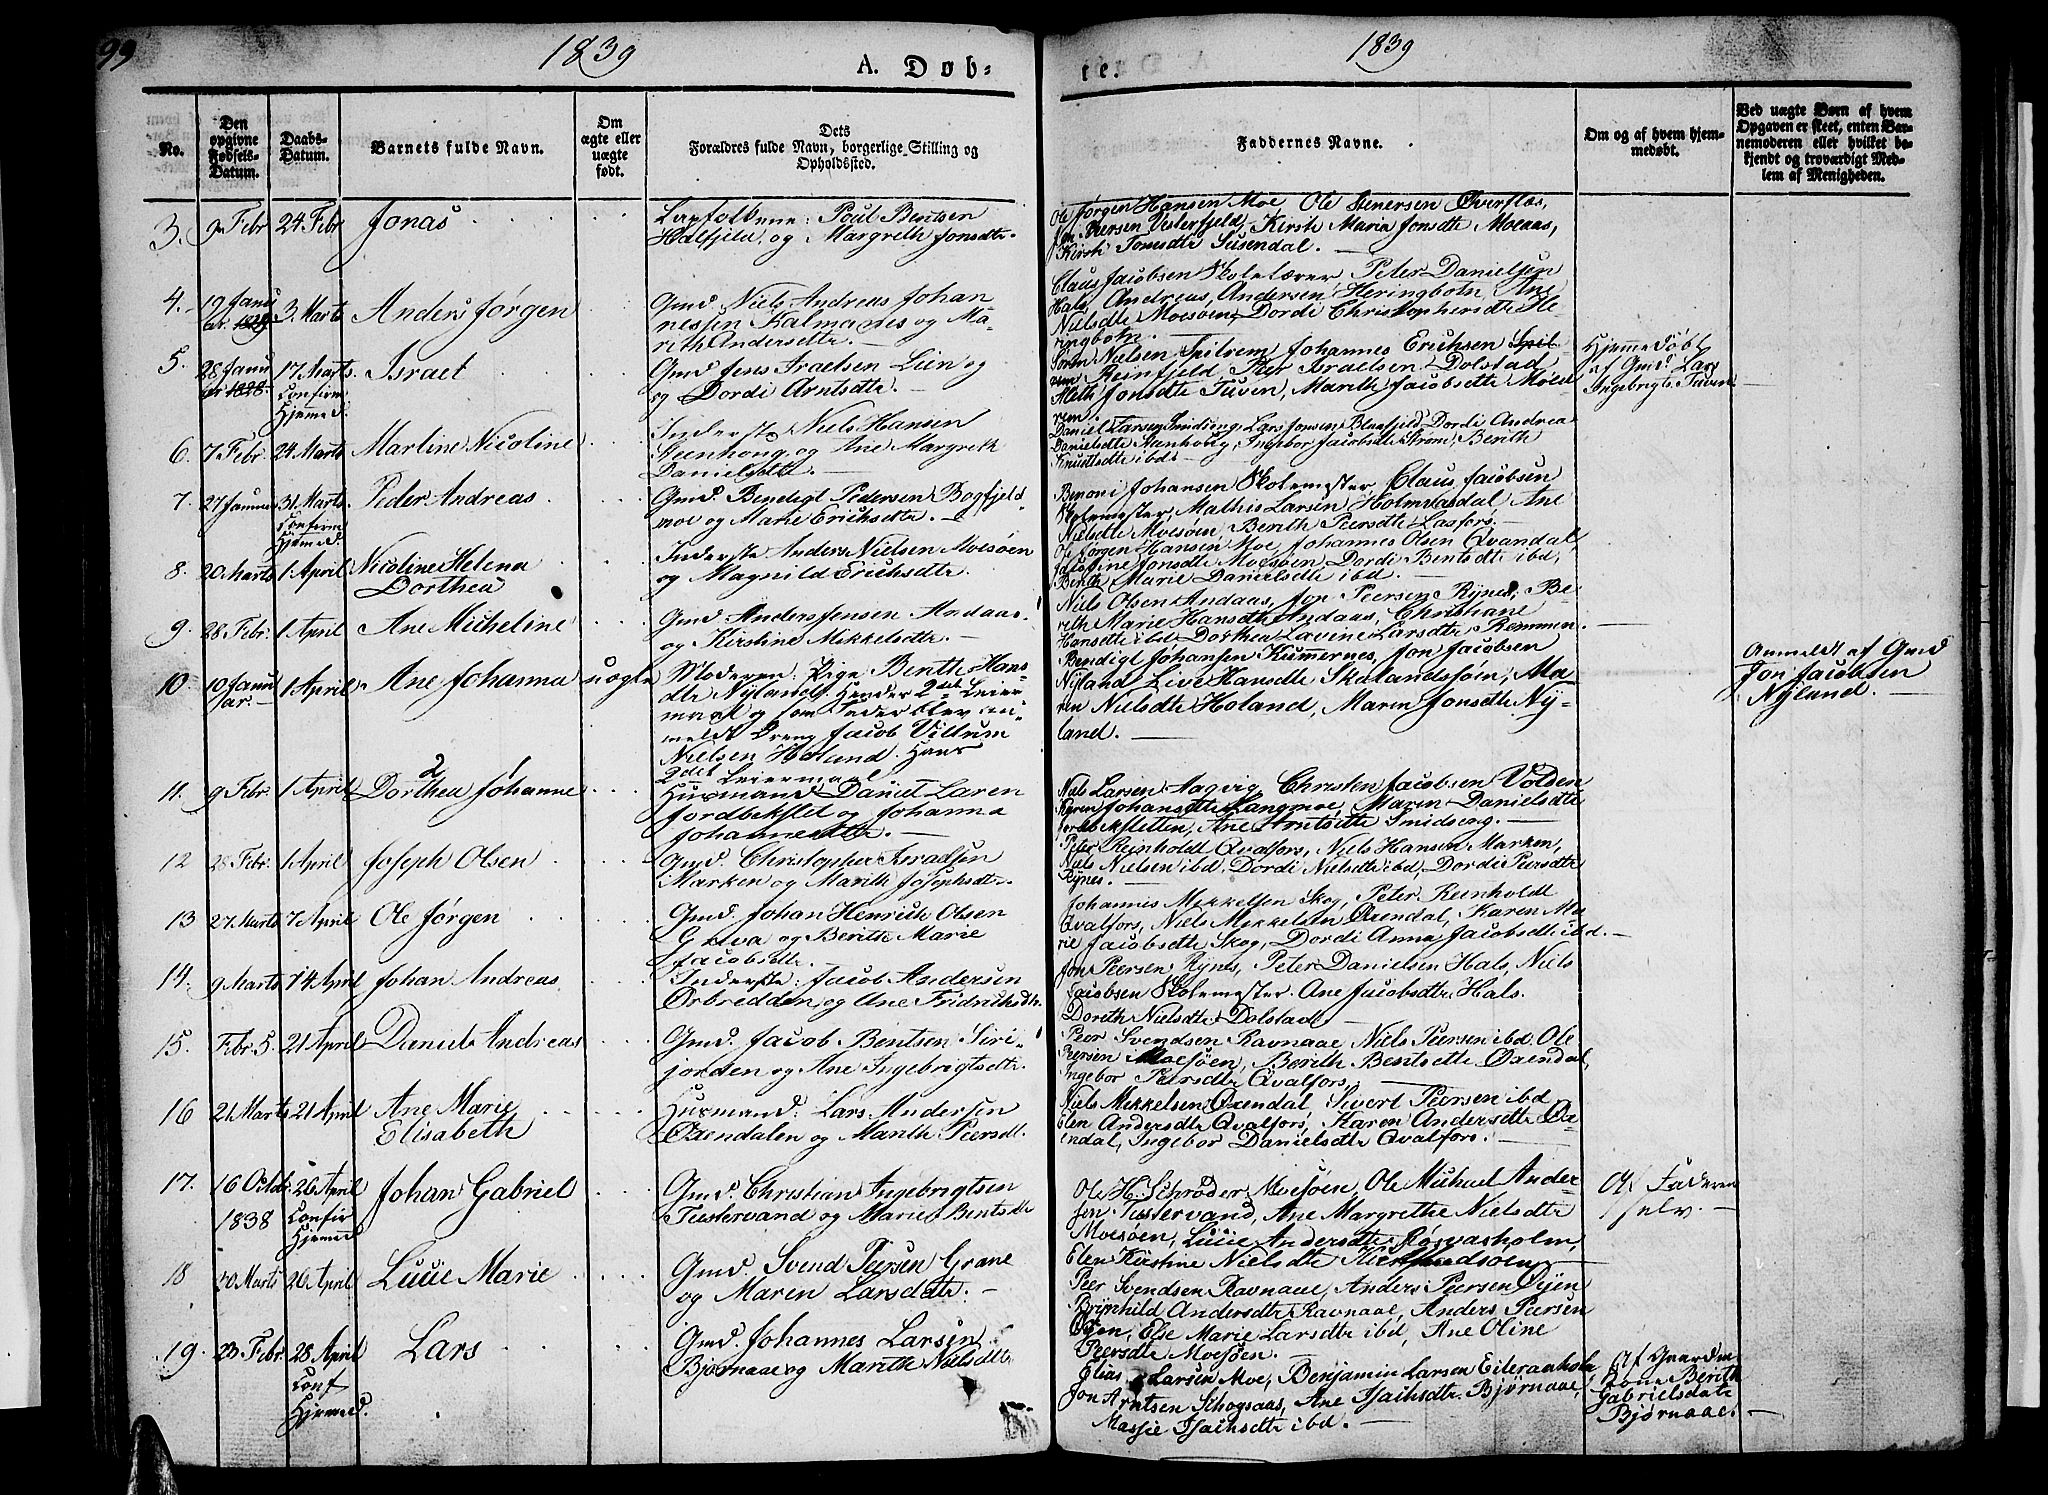 99
1839
A. Døb-
te.
1839
No.
Den opgivne Fødsels-Datum.
Daabs-Datum.
Barnets fulde Navn.
Om ægte eller uægte født.
Dets Forældres fulde Navn, borgerlige Stilling og Opholdssted.
Faddernes Navne.
Om og af hvem hjem-medøbt.
Ved uægte Børn af hvem Opgaven er skeet, enten Bar-nemoderen eller hvilket be-kjendt og troværdigt Med-lem af Menigheden.
3. 9 Febr 24 Febr Jonas
Lapfolkene: Poul Bentsen
Halfjeld, og Margreth Jonsdtr.
Ole Jørgen Hansen Moe Ole Stenersen Øverflæs,
Peersen Vesterfjeld, Kirsti Maria Jonsdtr Moeaas,
Kirsti Tomesdtr Susendal.
4. 19 Janu 3 Marts Anders Jørgen
ar. 1839
Gmd Niels Andreas Johan
nessen Kalmones og Ma-
rith Andersdtr.
Claus Jacobsen Skolelærer Peter Danielsen
Hals, Andreas Andersen Heringbotn, Ane
Nielsdtr Moesøen, Dordi Christophersdtr He-
ringbotn.
5. 28 Janu 17 Marts Israel
ar 1828. Confirm
Hjemmed.
Gmd Jens Israelsen Lien og
og Dordi Arntsdtr.
Søren Nielsen Spilrem Johannes Erichsen Spil-
rem Reinfjeld Peer Israelsen Dolstad
Meth Jonsdtr Tuven, Marith Jacobsdtr Møld
rem.
Hjemmedøbt
af Gmd Lars
Ingebrigts. Tuven
6. 7 Febr. 24 Marts Martine Nicoline
Inderste Niels Hansen
Steenhoug, og Ane Margreth
Danielsdtr.
Daniel Larsen Smidseng, Lars Jonsen Blaafjeld Dordi Andrea
Danielsdtr Stenhoug, Ingebor Jacobsdtr Strøm, Berith
Knudsdtr ibd
7. 27 Januar 31 Marts Peder Andreas
Confirm
Hjemmed.
Gmd. Bendigt Pedersen Bogfjeld
moe og Marie Erichsdtr.
Benoni Johansen Skolemester Claus Jacobsen
Skolemester, Mathis Larsen Holmvasdal, Ane
Nielsdtr Moesøen, Berith Peersdtr Lasfors.
8. 20 Marts 1 April Nicoline Helena
Dorthea
Inderste Anders Nielsen Moesøen
og Magnild Erichsdtr.
Ole Jørgen Hansen Moe Johannes Olsen Qvandal,
Josefine Jonsdtr Moesøen, Dordi Bentsdtr ibd,
Berith Marie Danielsdtr ibd.
9. 28 Febr. 1 April Ane Micheline
Gmd Anders Jensen Andaas
og Kirstine Mikkelsdtr.
Niels Olsen Andaas, Jon Peersen Rynes, Be-
rith Marie Hansdtr Andaas, Christiane
Hansdtr ibd Dorthea Lavine Larsdtr Remmen.
10 10 Janu 1 April Ane Johanna uægte
ar.
Moderen: Pige Berith Hans
dtr Nyland, Hendes 2det Leier
maal og som Fader blev an-
meldt Dreng Jacob Villum
Nielsen Holand. Hans
2det Leiermaal
Bendigt Johansen Kummernes, Jon Jacobsen
Nyland Live Hansdtr Skolandsøen, Ma-
ren Nielsdtr Holand, Maren Jonsdtr Ny-
land.
Anmeldt af Gmd
Jon Jacobsen
Nyland.
11. 9 Febr. 1 April Dorthea Johanne
Husmand Daniel Larsen
Jordbekslet og Johanna
Johannesdtr.
Niels Larsen Aagvig Christen Jacobsen Volden
Karen Johansdtr Langmoe, Maren Danielsdtr
Jordbekslettten, Ane Arntsdtr Smidseng.
12 28 Febr. 1 April Joseph Olsen
Gmd. Christopher Israelsen
Marken og Marith Josephsdtr.
Peter Reinholdt Qvalfors, Niels Hansen Marken,
Niels Nielsen ibd, Dordi Nielsdtr ibd, Dordi Peersdtr
Rynes.
13 27 Marts 7 April Ole Jørgen
Gmd. Johan Henrich Olsen
Græva og Berith Marie
Jacobsdtr.
Johannis Mikkelsen Skog, Peter Reinholdt
Qvalfors, Niels Mikkelsen Øxendal, Karen Ma
rie Jacobsdtr Skog, Dordi Anna Jacobsdtr ibd.
14. 9 Marts 14 April Johan Andreas
Inderste: Jacob Andersen
Ørbredden og Ane Fridrichsdtr.
Jon Peersen Rynes, Peter Danielsen Hals, Niels
Jacobsen Skolemester. Ane Jacobsdtr Hals.
Doreth Nielsdtr Dolstad
15. Febr. 5. 21 April Daniel Andreas
Gmd. Jacob Bentsen Siri-
jorden og Ane Ingebrigtsdtr.
Peer Svendsen Ravnaae, Niels Peersen ibd. Ole
Peersen Moesøen, Berith Bentsdtr Øxendal,
Ingebor Peersdtr Qvalfors,
16 21 Marts 21 April Ane Marie
Elisabeth
Husmand: Lars Andersen
Øxendalen og Marith Peersdt.
Niels Mikkelsen Øxendal Sivert Peersen ibd
Elen Andersdtr Qvalfors, Karen Andersdtr Øx-
endal, Ingebor Danielsdtr Qvalfors.
17. 16 Octbr. 26 April Johan Gabriel
1838 Confir
Hjemmed
Gmd. Christian Ingebrigtsen
Tustervand og Marie Bentsdtr
Ole H. Schrøder Moesøen, Ole Michael Ander-
sen Tustervand, Ane Margrethe Nielsdtr
Moesøen, Lucie Andersdtr Røsvasholm,
Elen Kirstine Nielsdtr
Af Faderen
selv.
18 20 Marts 26 April Lucie Marie
Gmd. Svend Peersen Grane
og Maren Larsdtr.
Peer Svendsen Ravnaae, Anders Peersen Øyen
Brynhild Andersdtr Ravnaae, Anders Peersen
Øyen, Else Marie Larsdtr ibd, Ane Oline
Peersdtr Moesøen.
19. 23 Febr. 28 April Lars
Conf
Hjemmed.
Gmd. Johannes Larsen
Bjørnaae og Marith Nielsdtr
Elias Larsen Moe, Benjamin Larsen Eiteraaholm,
Jon Arntsen Schogsaas, Ane Isachsdtr. Bjørnaae,
Massie Isachsdtr ibd.
Af Gaardm.
Kone Berith
Gabrielsdatr
Bjørnaae.